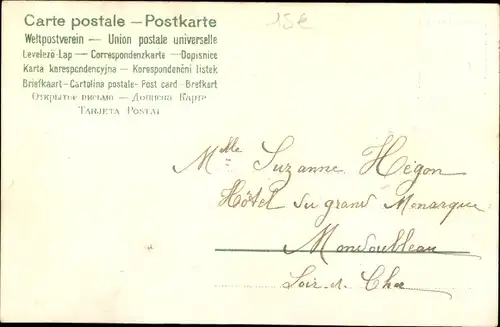 Carte postale – Postkarte
15€
Weltpostverein – Union postale universelle
Levelező-Lap – Correspondenzkarte – Dopisnice
Karta korespondencyjna – Korespondenční lístek
Briefkaart – Cartolina postale – Post card Brefkort
Открытое письмо – Дописна Карте
Tarjeta Postal
Mlle Suzanne Hégon
Hôtel du grand Monarque
Mondoubleau
Loir-et-Cher